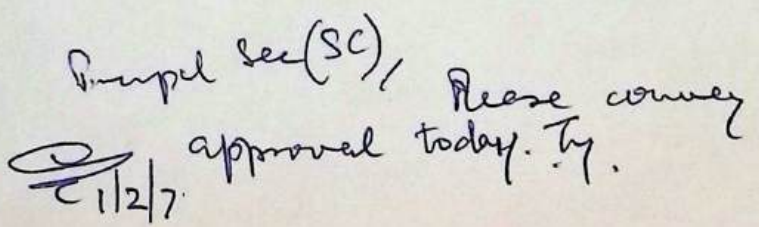 Principal Sec(SC), Please convey
approval today. Ty.
1/2/7